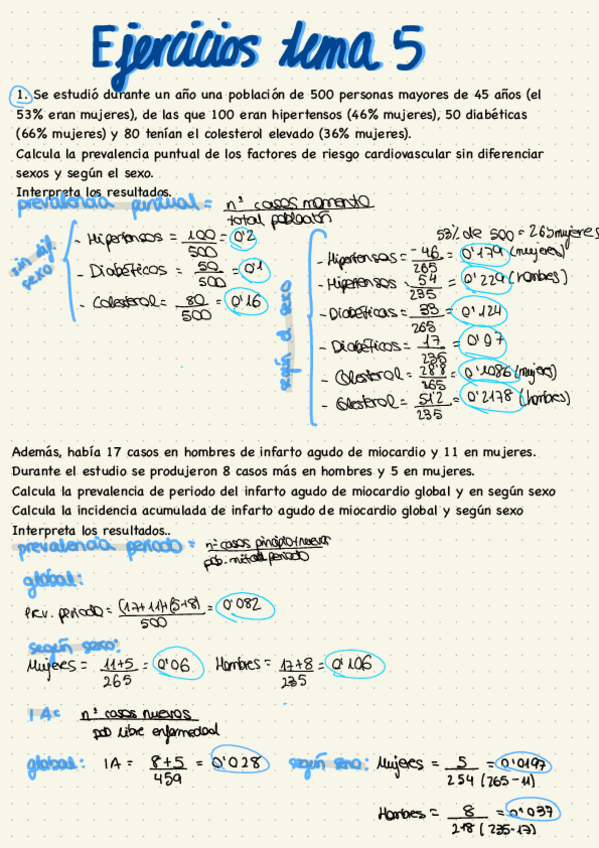 Ejercicios tema 5
1. Se estudió durante un año una población de 500 personas mayores de 45 años (el
53% eran mujeres), de las que 100 eran hipertensos (46% mujeres), 50 diabéticas
(66% mujeres) y 80 tenían el colesterol elevado (36% mujeres).
Calcula la prevalencia puntual de los factores de riesgo cardiovascular sin diferenciar
sexos y según el sexo.
Interpreta los resultados.
prevalencia puntual = nº casos momento / total población
sin dif. sexo
- Hipertensos = 100/500 = 0'2
- Diabéticos = 50/500 = 0'1
- Colesterol = 80/500 = 0'16
según el sexo
53% de 500 = 265 mujeres
- Hipertensas = 46/265 = 0'179 (mujeres)
- Hipertensos = 54/235 = 0'229 (hombres)
- Diabéticas = 33/265 = 0'124
- Diabéticos = 17/235 = 0'07
- Colesterol = 28'8/265 = 0'1086 (mujeres)
- Colesterol = 51'2/235 = 0'2178 (hombres)
Además, había 17 casos en hombres de infarto agudo de miocardio y 11 en mujeres.
Durante el estudio se produjeron 8 casos más en hombres y 5 en mujeres.
Calcula la prevalencia de periodo del infarto agudo de miocardio global y en según sexo
Calcula la incidencia acumulada de infarto agudo de miocardio global y según sexo
Interpreta los resultados..
prevalencia periodo = nº casos principio+nuevos / pob. mitad periodo
global:
Prev. periodo = (17+11)+(5+8)/500 = 0'082
según sexo:
Mujeres = 11+5/265 = 0'06 Hombres = 17+8/235 = 0'106
IA = nº casos nuevos / pob libre enfermedad
global: IA = 8+5/459 = 0'028 según sexo: Mujeres = 5/254 (265-11) = 0'0197
Hombres = 8/218 (235-17) = 0'037